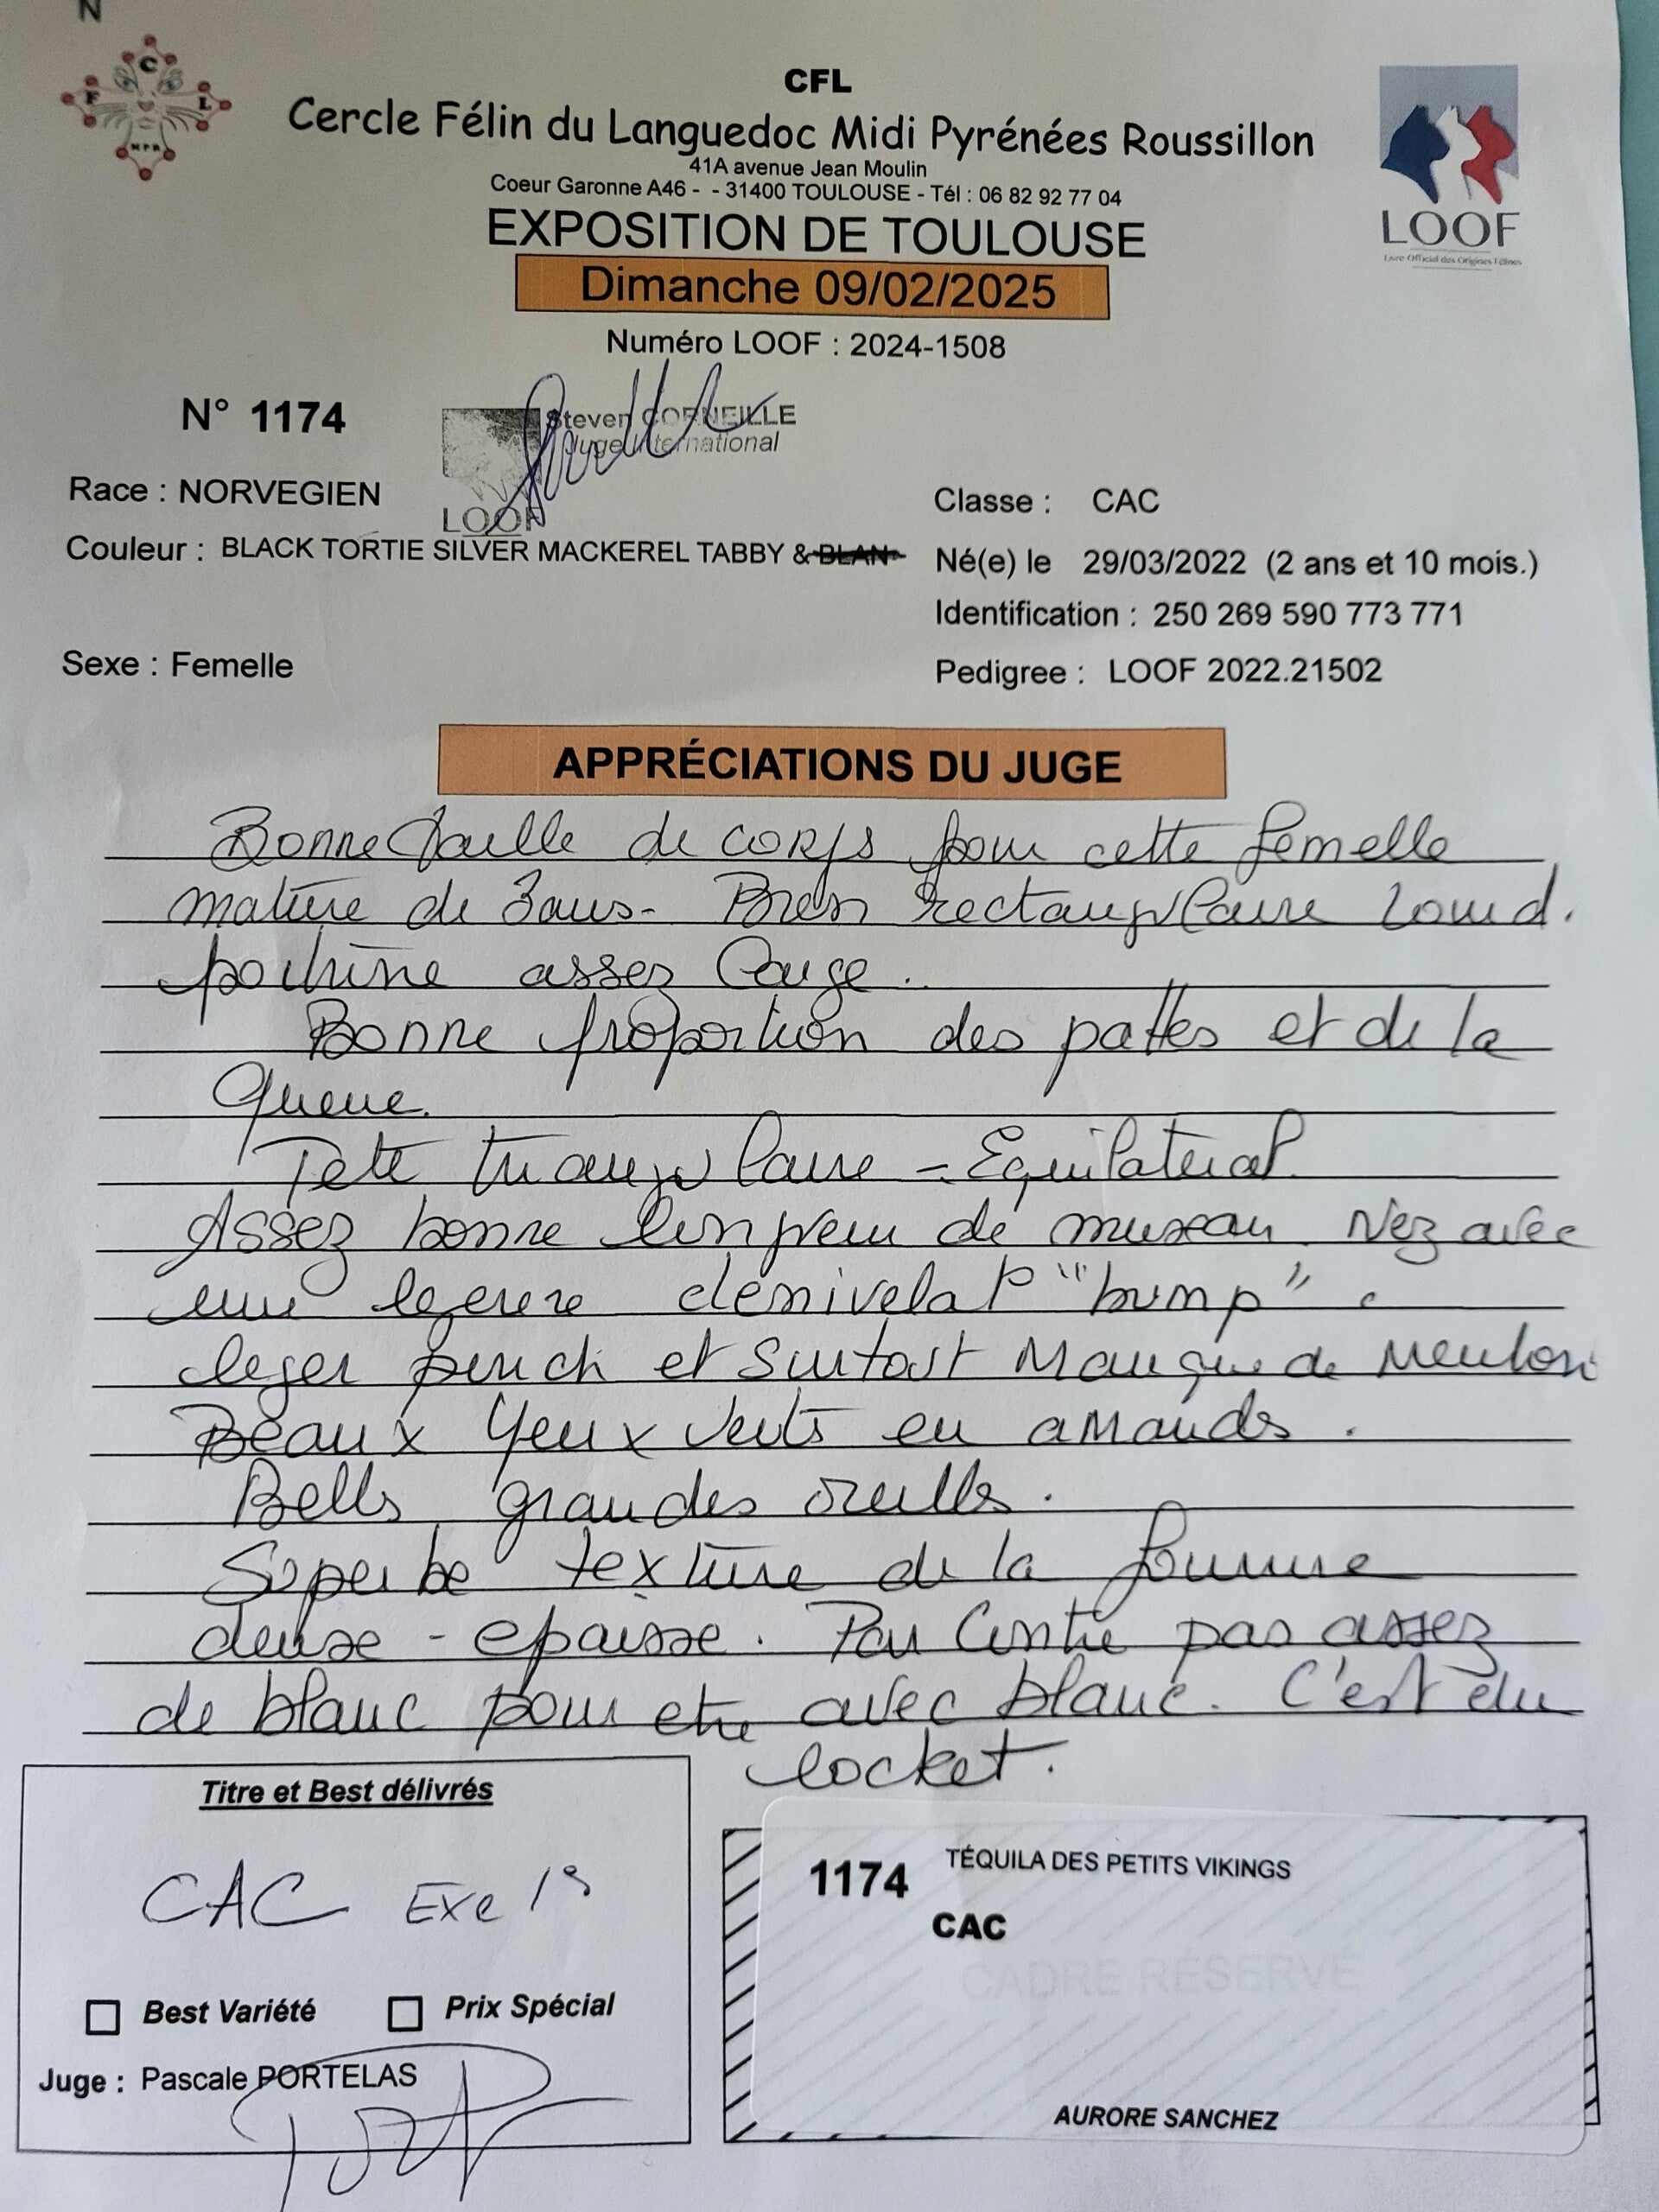 N
C
F
L
MPR
CFL
Cercle Félin du Languedoc Midi Pyrénées Roussillon
41A avenue Jean Moulin
Coeur Garonne A46 - - 31400 TOULOUSE - Tél : 06 82 92 77 04
LOOF
Livre Officiel des Origines Félines
EXPOSITION DE TOULOUSE
Dimanche 09/02/2025
Numéro LOOF : 2024-1508
N° 1174
Steven CORNEILLE
Juge International
LOOF
Race : NORVEGIEN
Classe : CAC
Couleur : BLACK TORTIE SILVER MACKEREL TABBY & BLAN
Né(e) le 29/03/2022 (2 ans et 10 mois.)
Identification : 250 269 590 773 771
Sexe : Femelle
Pedigree : LOOF 2022.21502
APPRÉCIATIONS DU JUGE
Bonne taille de corps pour cette femelle
mature de 3ans- Bien rectangulaire lourd.
poitrine assez large.
Bonne proportion des pattes et de la
queue.
Tete triangulaire - Equilateral
Assez bonne longueur de museau. Nez avec
une legere denivelat° "bump".
leger pinch et surtout Manque de Menton
Beaux Yeux verts en amande.
Belles grandes oreilles.
Superbe texture de la fourrure
dense - epaisse. Par Contre pas assez
de blanc pour etre avec blanc. C'est du
locket.
Titre et Best délivrés
CAC Exc 1°
Best Variété
Prix Spécial
Juge : Pascale PORTELAS
1174
TÉQUILA DES PETITS VIKINGS
CAC
CADRE RÉSERVÉ
AURORE SANCHEZ